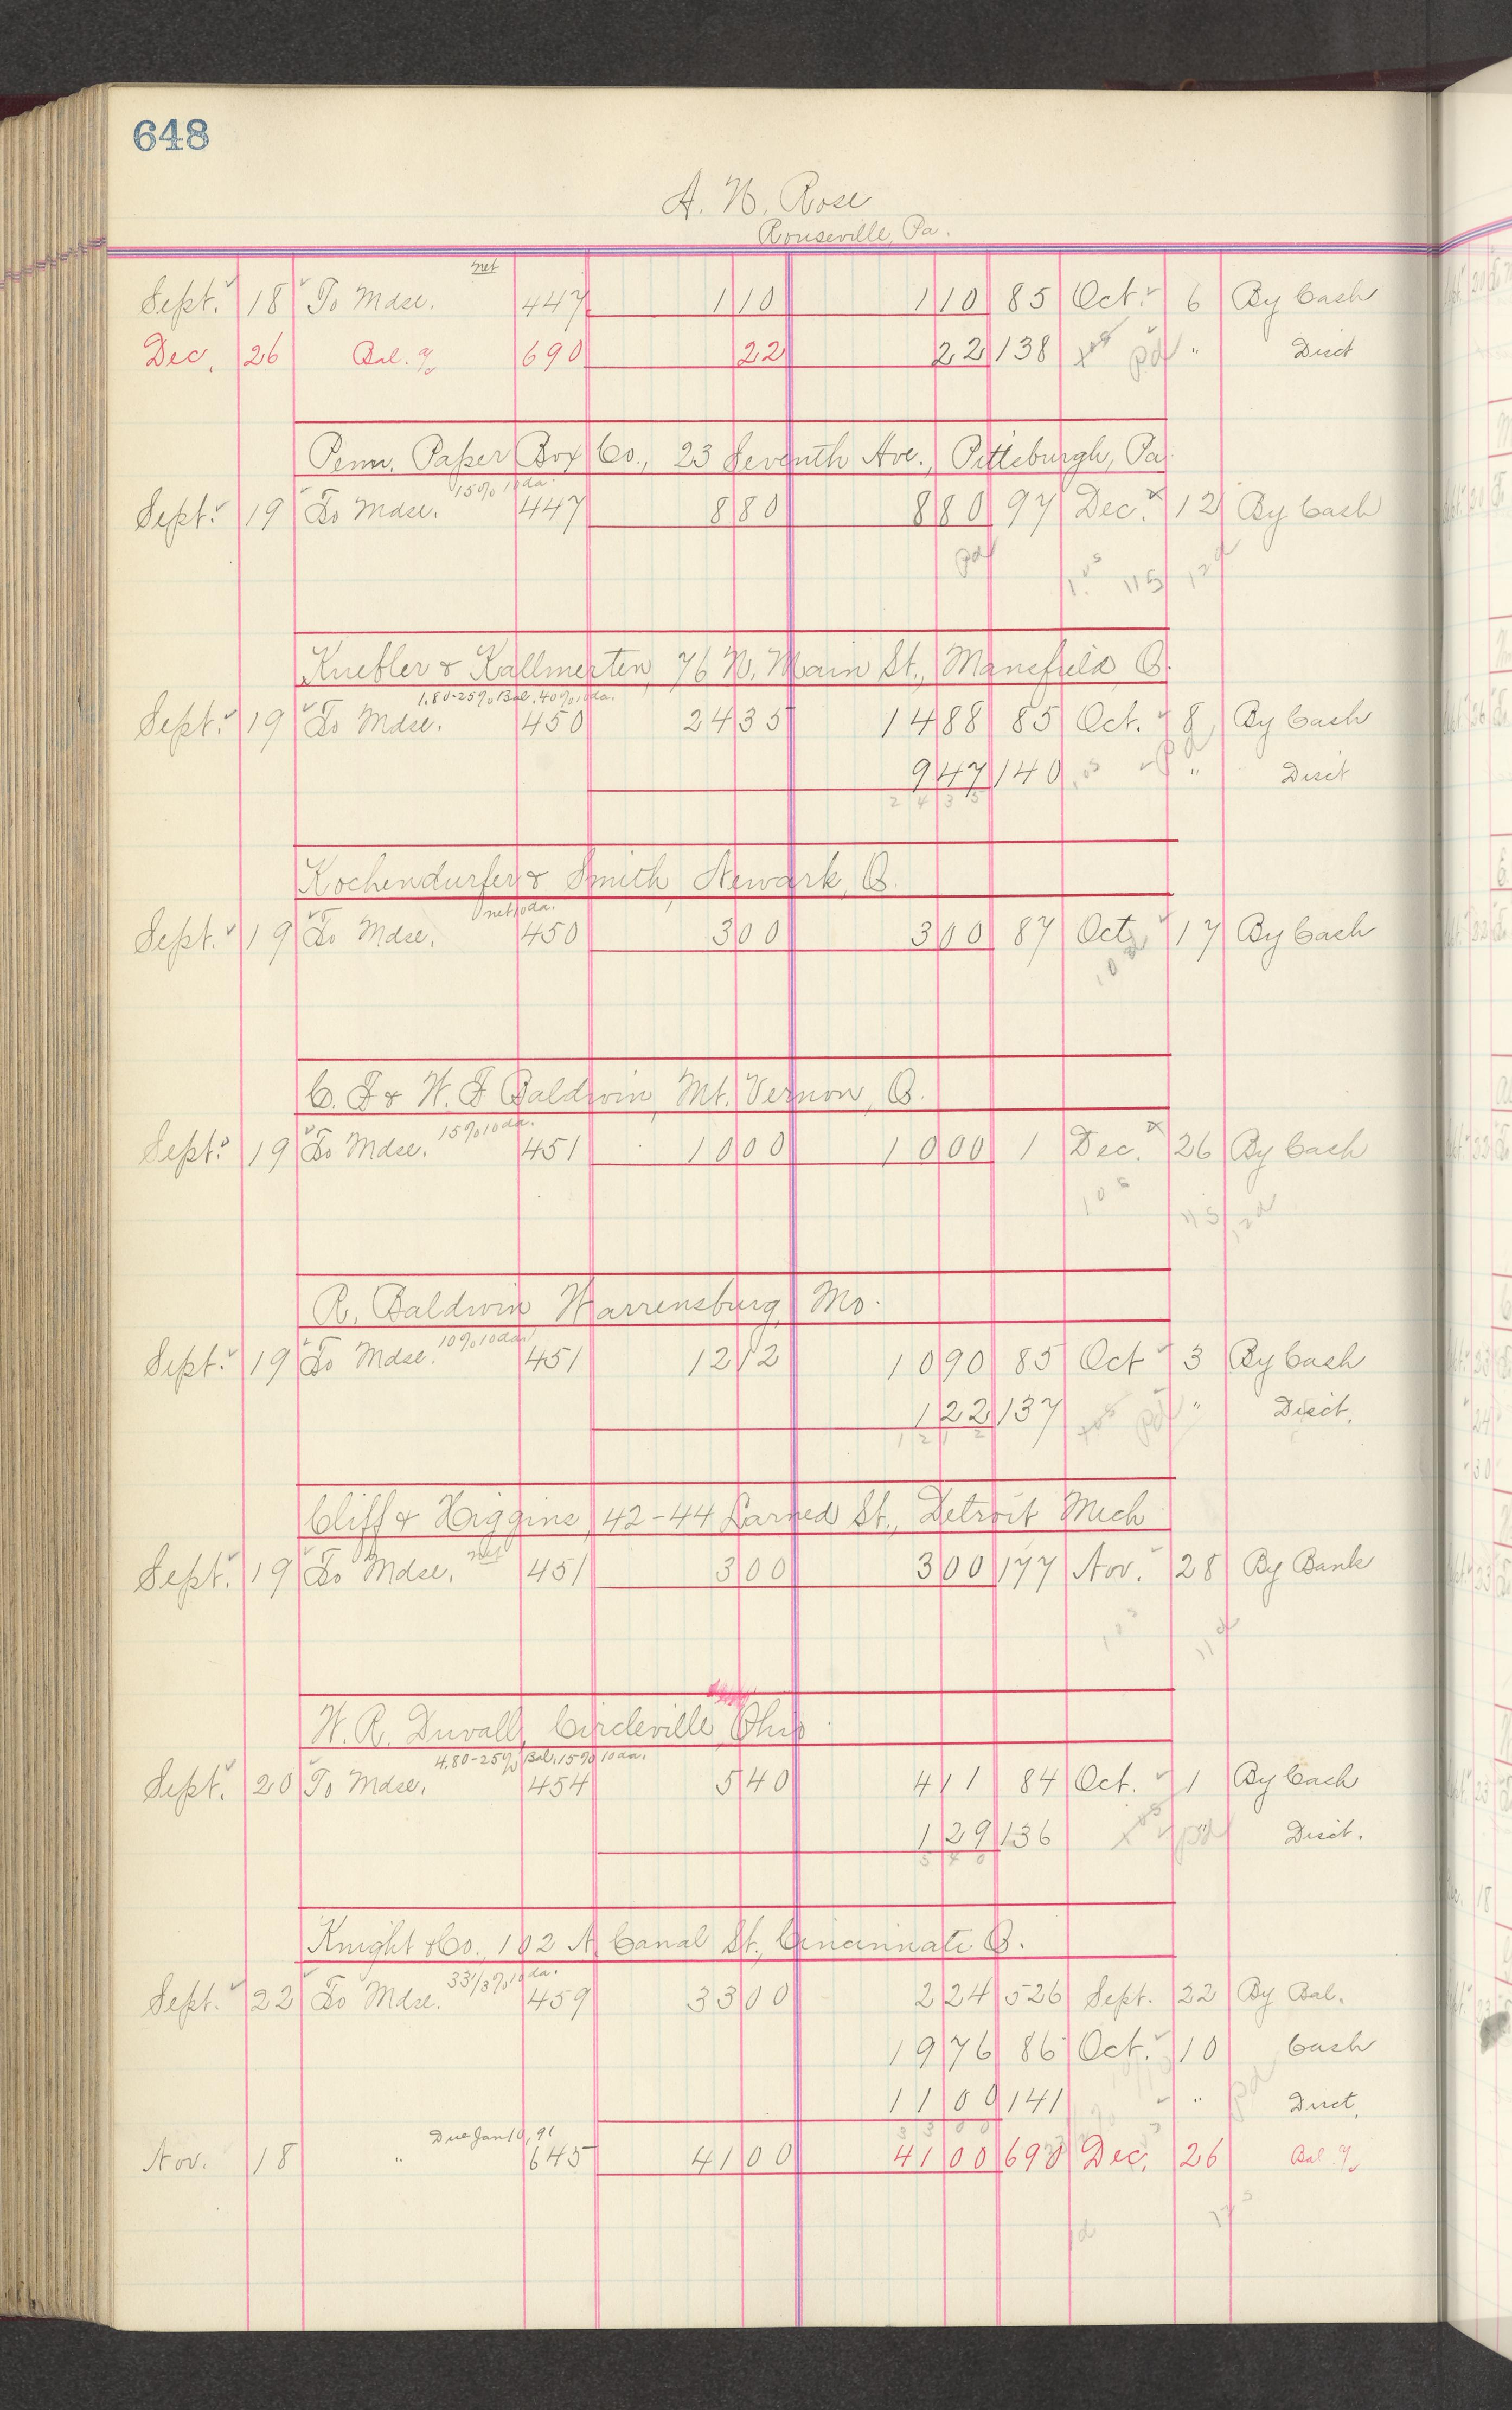 648
A. N. Rose
Rouseville, Pa.
net
Sept. 18 To Mdse. 447 1 10 1 10 85 Oct. 6 By Cash
Dec. 26 Bal. 690 22 22 138 pd " Disct
Penn. Paper Box Co., 23 Seventh Ave., Pittsburgh, Pa.
15% 10 da.
Sept. 19 To Mdse. 447 8 80 8 80 97 Dec. 12 By Cash
pd 115
Knebler & Kallmerten, 76 N. Main St., Mansfield O.
1.80-25% Bal. 40% 10 da.
Sept. 19 To Mdse. 450 24 35 14 88 85 Oct. 8 By Cash
9 47 140 " Disct
24 35
Kochendurfer & Smith, Newark, O.
net 10 da.
Sept. 19 To Mdse. 450 3 00 3 00 87 Oct. 17 By Cash
C. F & W. F Baldwin, Mt. Vernon, O.
15% 10 da.
Sept. 19 To Mdse. 451 10 00 10 00 1 Dec. 26 By Cash
R. Baldwin Warrensburg, Mo.
10% 10 da.
Sept. 19 To Mdse. 451 12 12 10 90 85 Oct 3 By Cash
1 22 137 pd " Disct.
12 12
Cliff & Higgins, 42-44 Larned St., Detroit Mich
net
Sept. 19 To Mdse. 451 3 00 3 00 177 Nov. 28 By Bank
W. R. Duvall, Circleville, Ohio
4.80-25% Bal. 15% 10 da.
Sept. 20 To Mdse. 454 5 40 4 11 84 Oct. 1 By Cash
1 29 136 pd " Disct.
5 40
Knight & Co., 102 N Canal St., Cincinnati O.
33 1/3% 10 da.
Sept. 22 To Mdse. 459 33 00 2 24 526 Sept. 22 By Bal.
19 76 86 Oct. 10 Cash
11 00 141 " pd Disct.
33 00
Due Jan 10, 91
Nov. 18 " 645 41 00 41 00 690 Dec. 26 Bal.